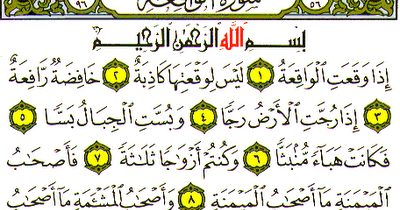 ٩٦ سورة الواقعة ٥٦
بِسْمِ ٱللَّهِ ٱلرَّحْمَٰنِ ٱلرَّحِيمِ
إِذَا وَقَعَتِ ٱلْوَاقِعَةُ ١ لَيْسَ لِوَقْعَتِهَا كَاذِبَةٌ ٢ خَافِضَةٌ رَّافِعَةٌ
٣ إِذَا رُجَّتِ ٱلْأَرْضُ رَجًّا ٤ وَبُسَّتِ ٱلْجِبَالُ بَسًّا ٥
فَكَانَتْ هَبَآءً مُّنۢبَثًّا ٦ وَكُنتُمْ أَزْوَٰجًا ثَلَٰثَةً ٧ فَأَصْحَٰبُ
ٱلْمَيْمَنَةِ مَآ أَصْحَٰبُ ٱلْمَيْمَنَةِ ٨ وَأَصْحَٰبُ ٱلْمَشْـَٔمَةِ مَآ أَصْحَٰبُ